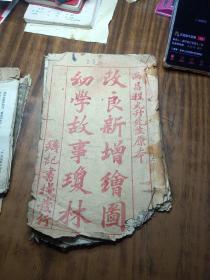 西昌程允升先生原本
改良新增繪圖
幼學故事瓊林
鑄記書局發行